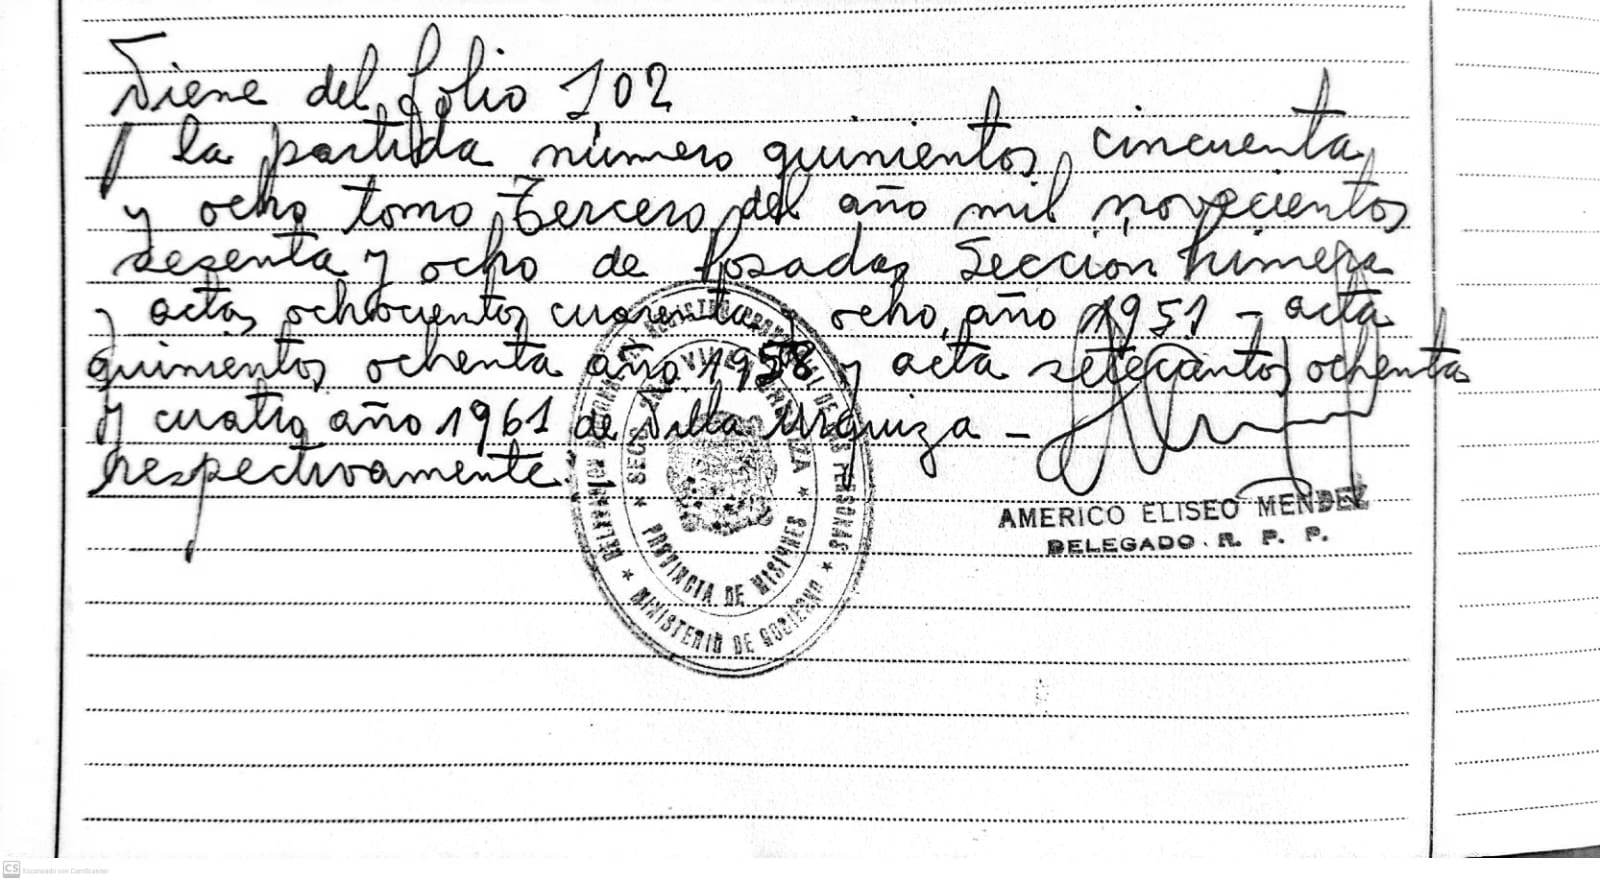 Viene del folio 102
la partida número quinientos cincuenta
y ocho tomo Tercero del año mil novecientos
sesenta y ocho de Posadas Sección Primera
y actas ochocientos cuarenta y ocho, año 1951 - acta
quinientos ochenta año 1958 y acta setecantos ochenta
y cuatro año 1961 de Villa Urquiza -
respectivamente.
AMERICO ELISEO MENDEZ
DELEGADO. R. P. P.
PROVINCIA DE MISIONES
MINISTERIO DE GOBIERNO
DE LAS PERSONAS
CS Escaneado con CamScanner